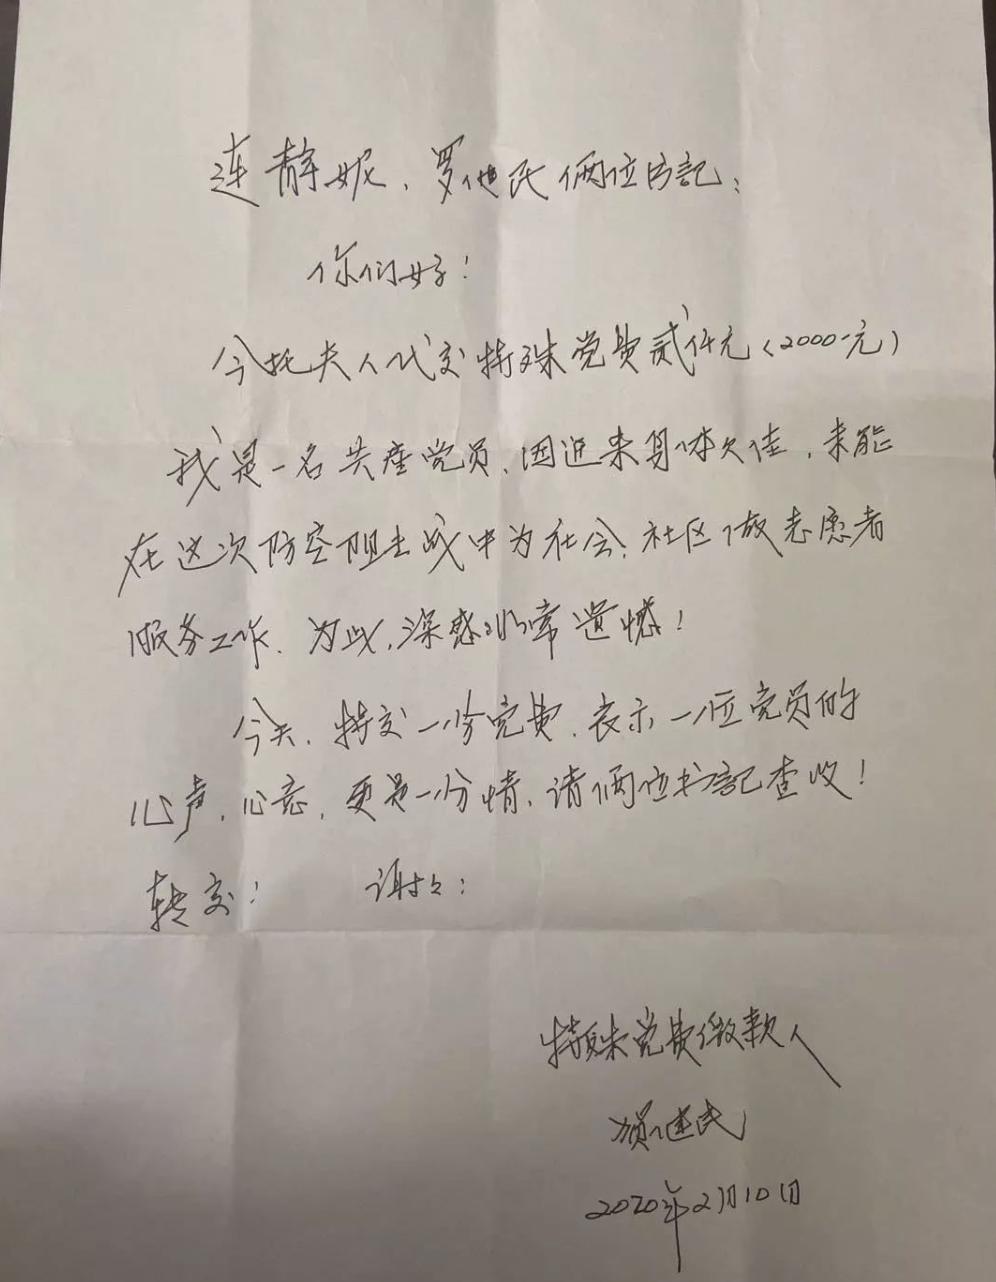 连静妮、罗他氏俩位书記：
你们好！
今托夫人代交特殊党费贰仟元（2000元）
我是一名共产党员、因近来身体欠佳，未能
在这次防空阻击战中为社会、社区做志愿者
服务工作、为此，深感非常遗憾！
今天、特交一份党费、表示一位党员的
心声，心意，更是一份情、请俩位书記查收！
转交！ 谢谢：
特殊党费缴款人
贺建民
2020年2月10日